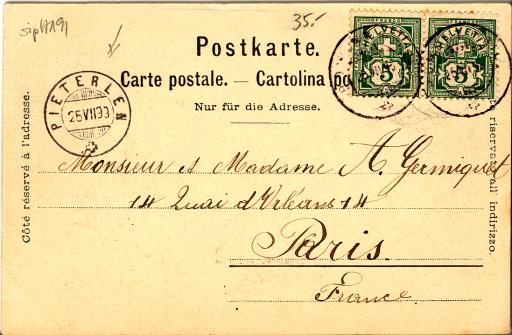 35.-
Postkarte.
Carte postale. — Cartolina po
Nur für die Adresse.
Côté réservé à l'adresse.
riservato all' indirizzo.
PIETERLEN
25 VII 99
FRANCO FRANCO
HELVETIA HELVETIA
5 5
Monsieur et Madame A. Germiquet
14 Quai d'Orléans 14
Paris.
France.